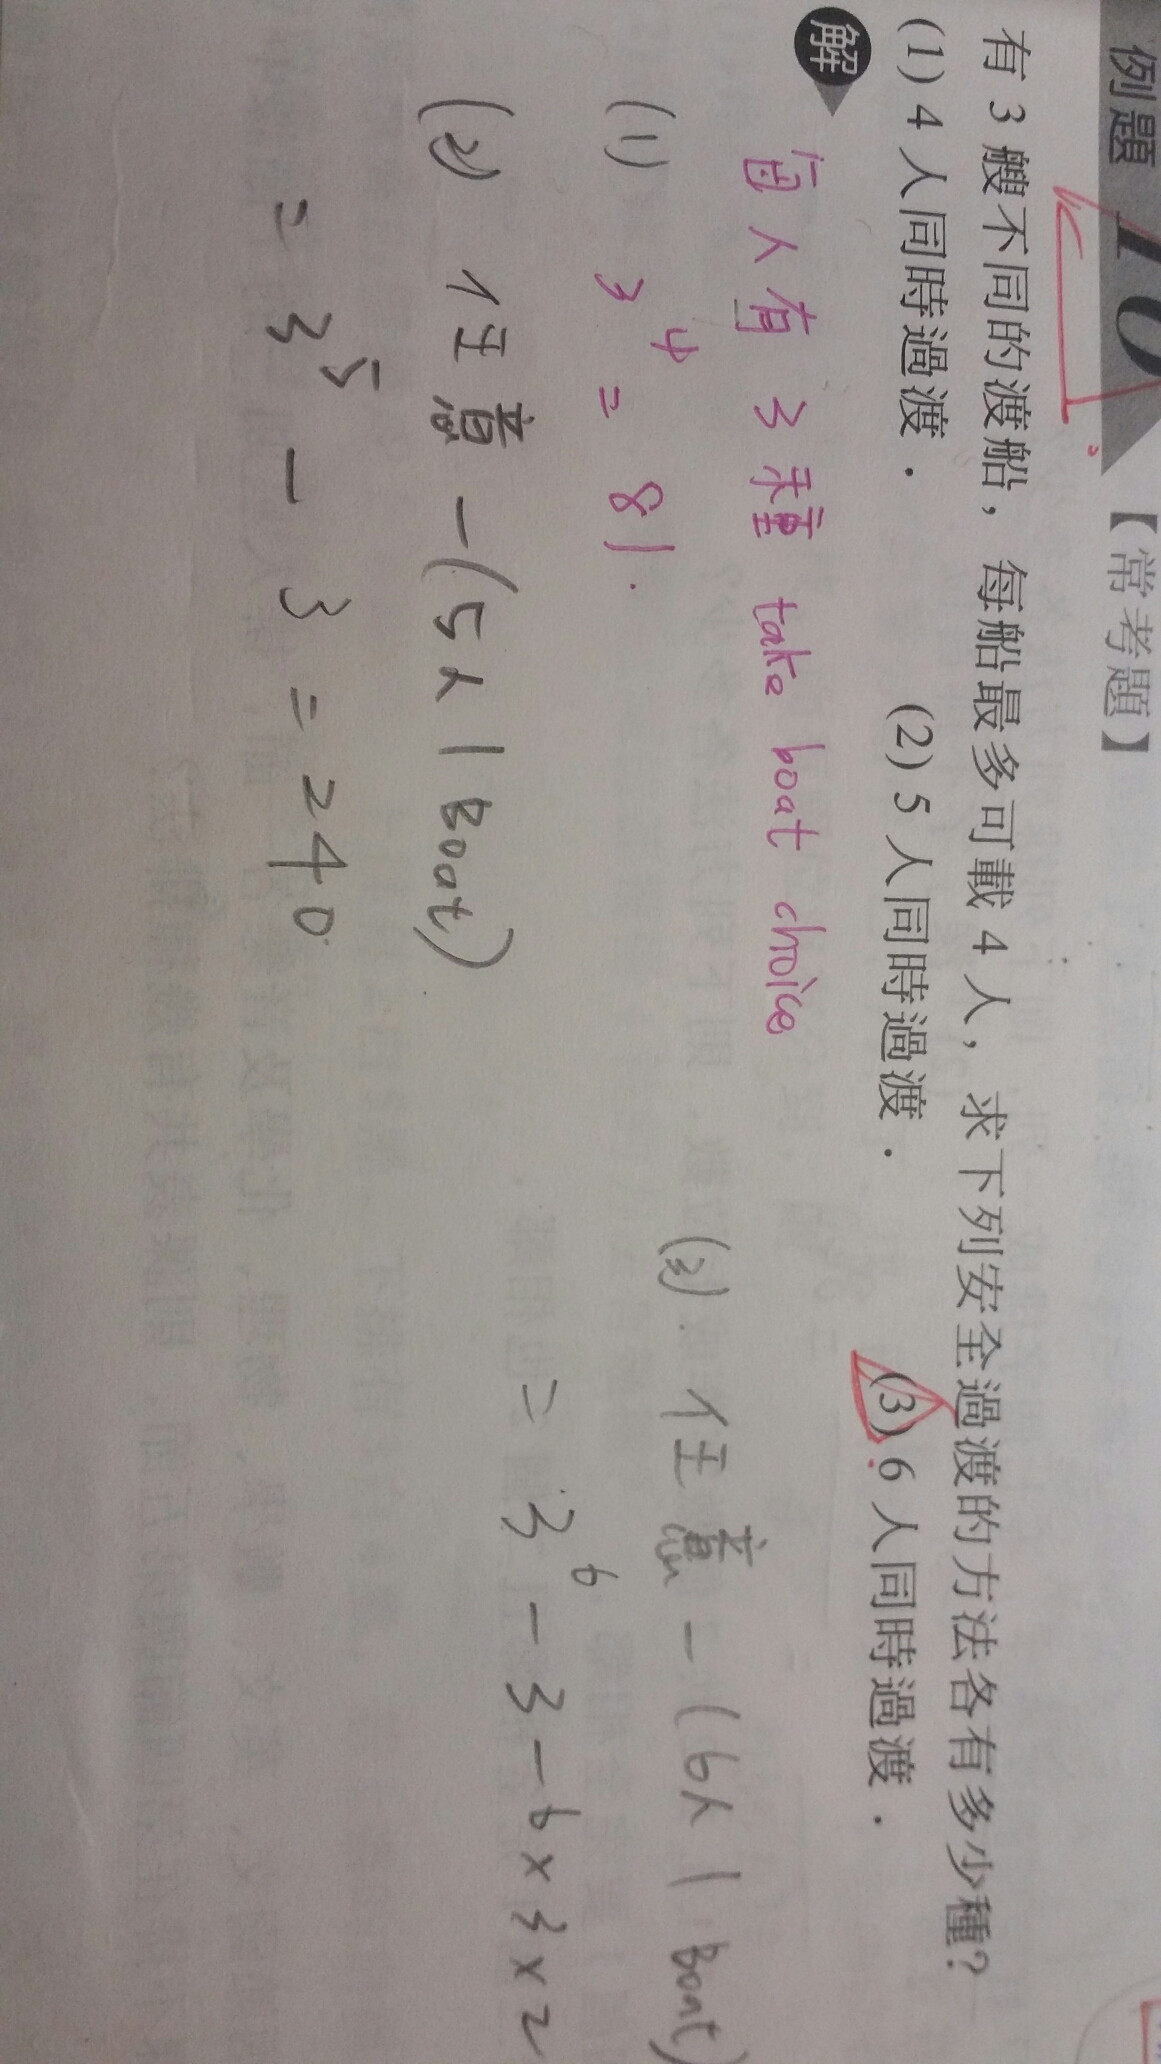 例題 10 【常考題】
有 3 艘不同的渡船，每船最多可載 4 人，求下列安全過渡的方法各有多少種？
(1) 4 人同時過渡． (2) 5 人同時過渡． (3) 6 人同時過渡．
解
每人有 3 種 take boat choice
(1) 3^4 = 81.
(2) 任意 - (5人 1 Boat)
= 3^5 - 3 = 240
(3) 任意 - (6人 1 Boat)
= 3^6 - 3 - 6 × 3 × 2